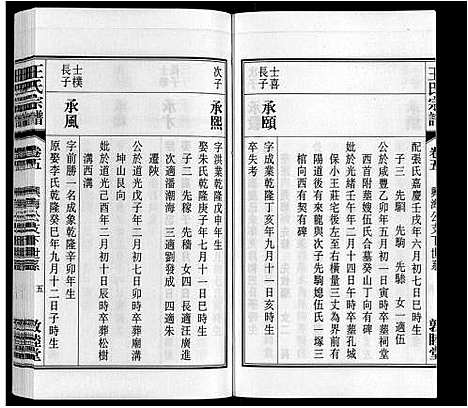 王氏宗譜
卷五
敦睦堂
配張氏嘉慶壬戌年六月初七日寅時生
子三 先騆 先駒 先驂 女一適伍
公於咸豐乙卯年五月初一日寅時卒墓祠堂
灣西首附墓媳伍氏合墓癸山丁向有碑
妣於光緒壬午年二月十四日午時卒墓孔城
保小王莊宅後左至右橫量三丈為界前有
陽道後有來坎次子先駒媳伍氏一塚三
棺向西有契有碑
士喜
長子
承頤
字成業乾隆丁亥年九月十一日亥時生
卒失考
次子
承熙
字洪業乾隆戊申年生
娶朱氏乾隆庚子年七月十一日巳時生
子二 先稼 先穡 女五長適汪廣進
次適潘潮海 三適劉發成 四適朱
遷陝
公於道光年二月初七日
坤山艮向
妣於道光己酉年二月初十日辰時卒葬松樹
溝西溝
士樸
長子
承風
字前勝一名成象乾隆辛卯年生
原娶李氏乾隆癸巳年九月十一日子時生
王氏宗譜
卷五
五
敦睦堂